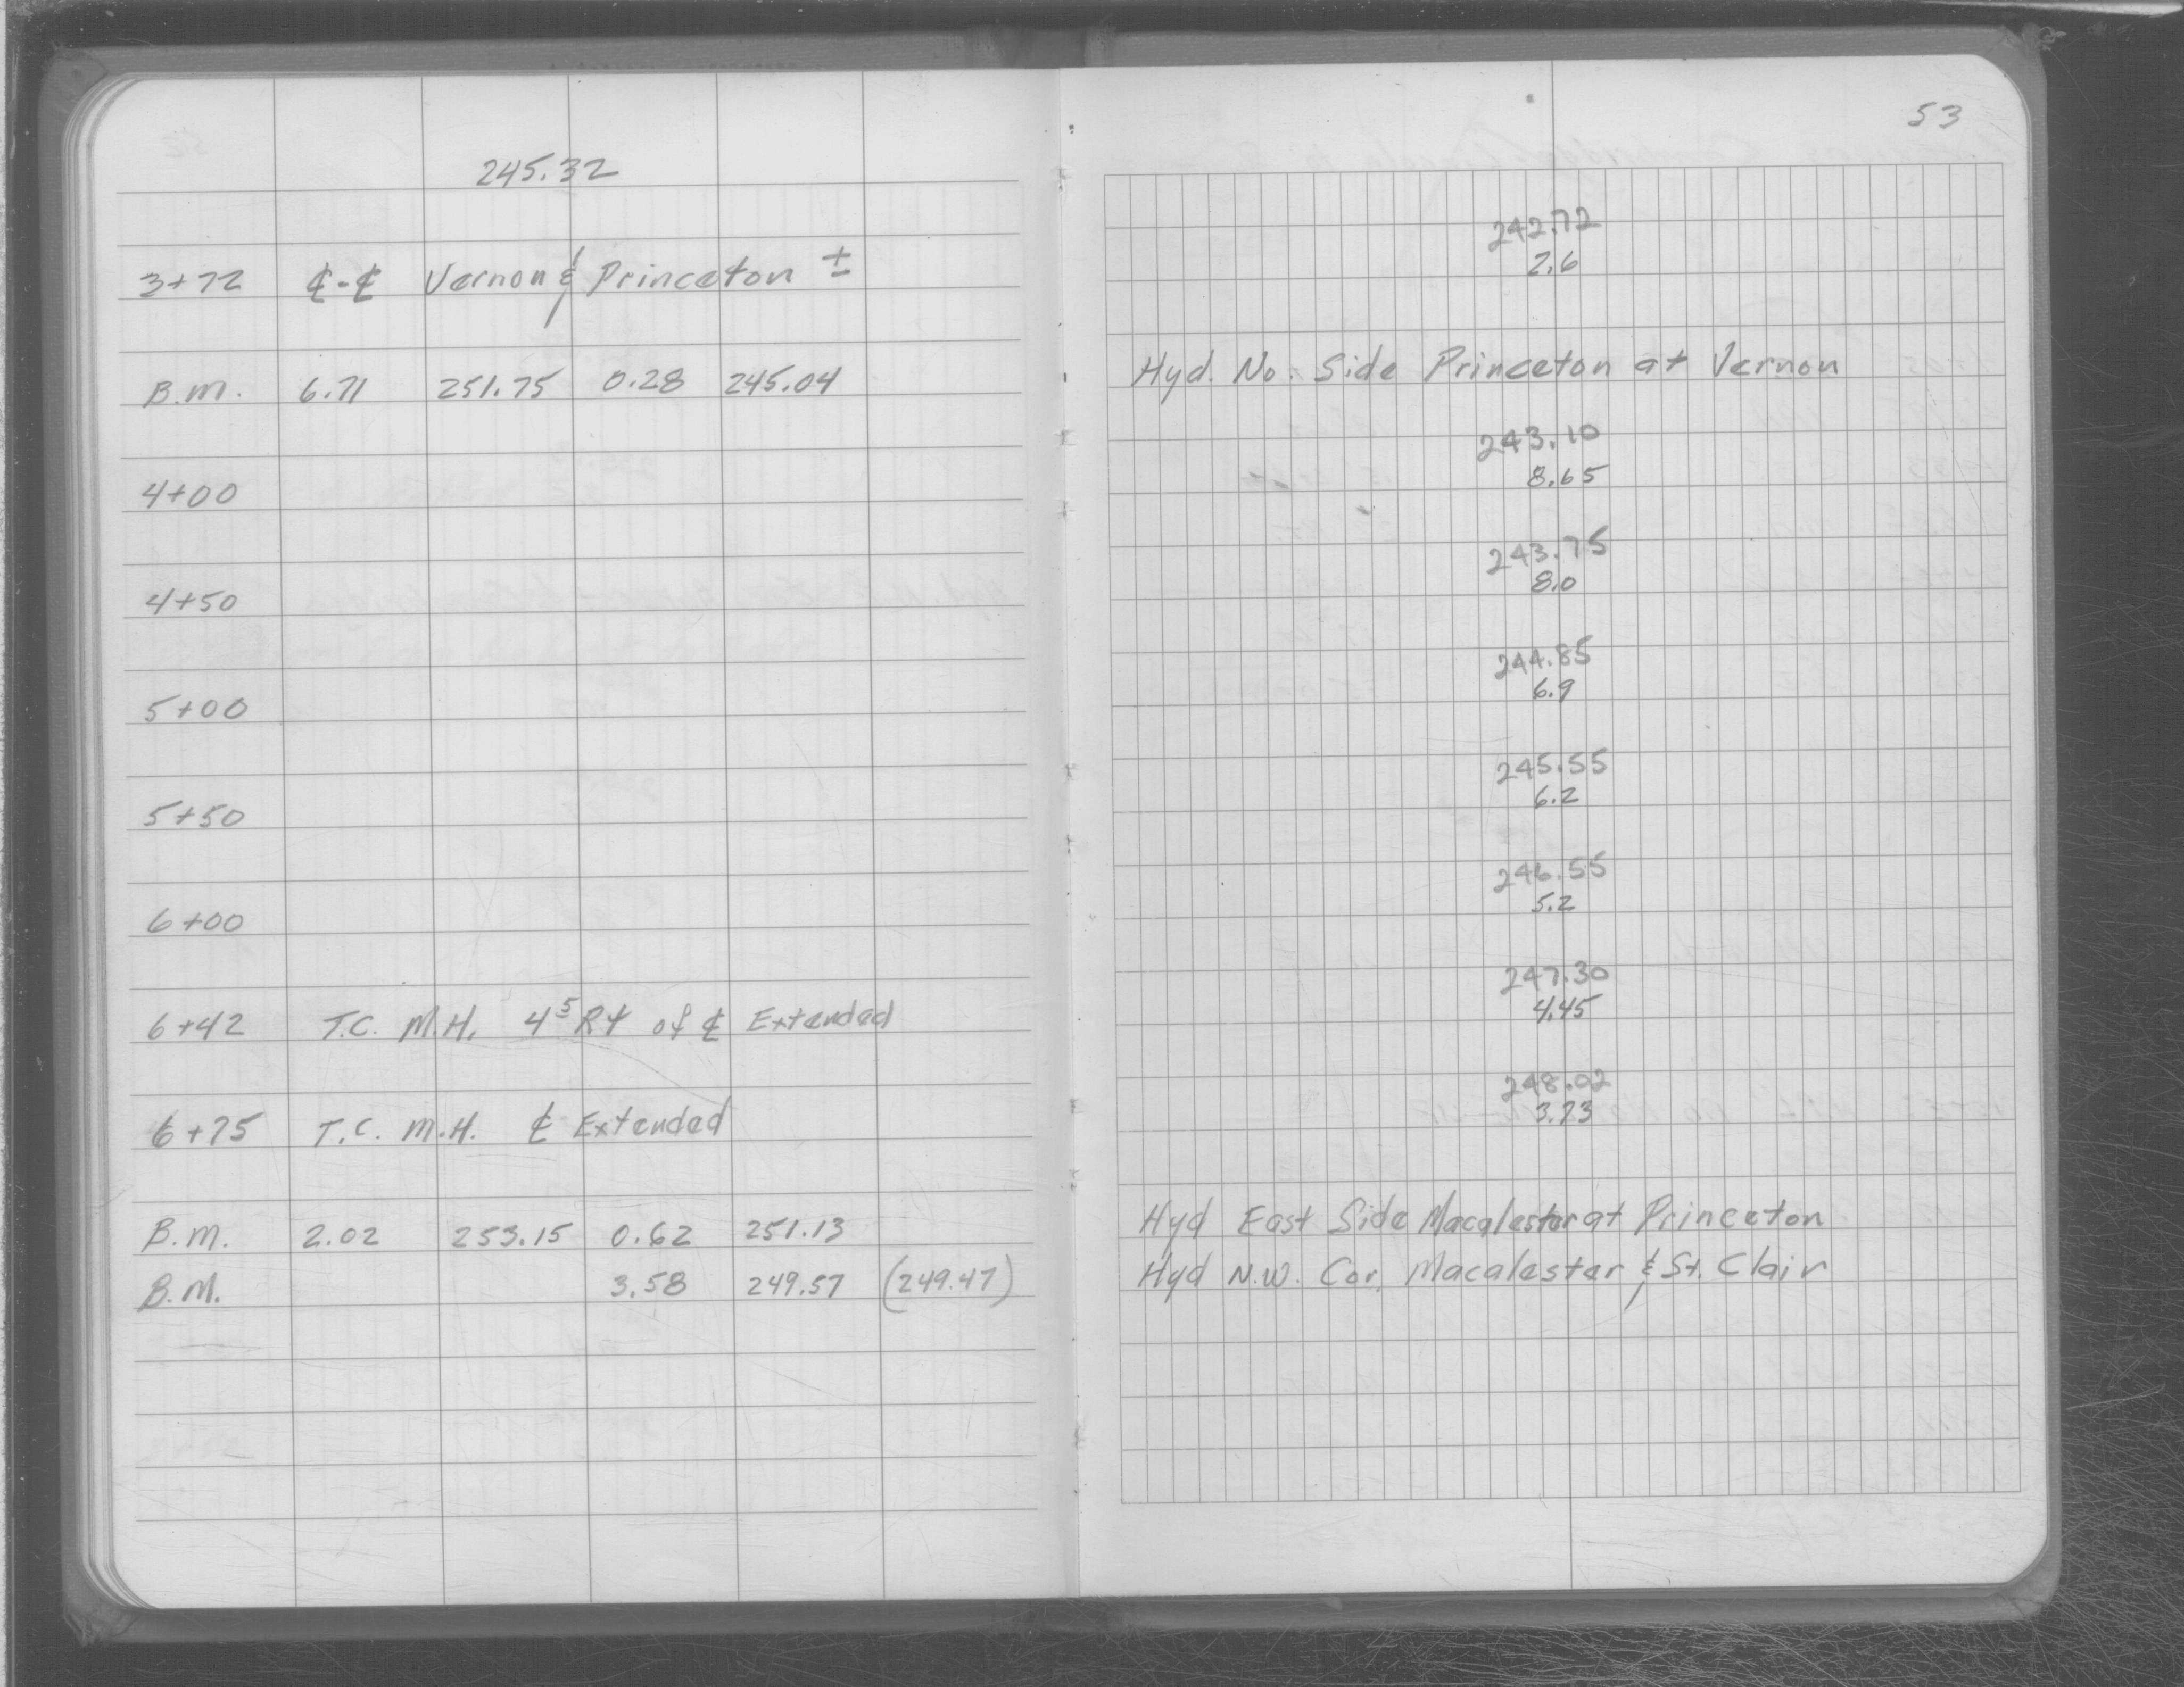 245.32
3+72 ℄-℄ Vernon & Princeton ±
B.M. 6.71 251.75 0.28 245.04
4+00
4+50
5+00
5+50
6+00
6+42 T.C. M.H. 4⁵ Rt of ℄ Extended
6+75 T.C. M.H. ℄ Extended
B.M. 2.02 253.15 0.62 251.13
B.M. 3.58 249.57 (249.47)
53
242.72
2.6
Hyd. No. Side Princeton at Vernon
243.10
8.65
243.75
8.0
244.85
6.9
245.55
6.2
246.55
5.2
247.30
4.45
248.02
3.73
Hyd East Side Macalester at Princeton
Hyd N.W. Cor. Macalester & St. Clair